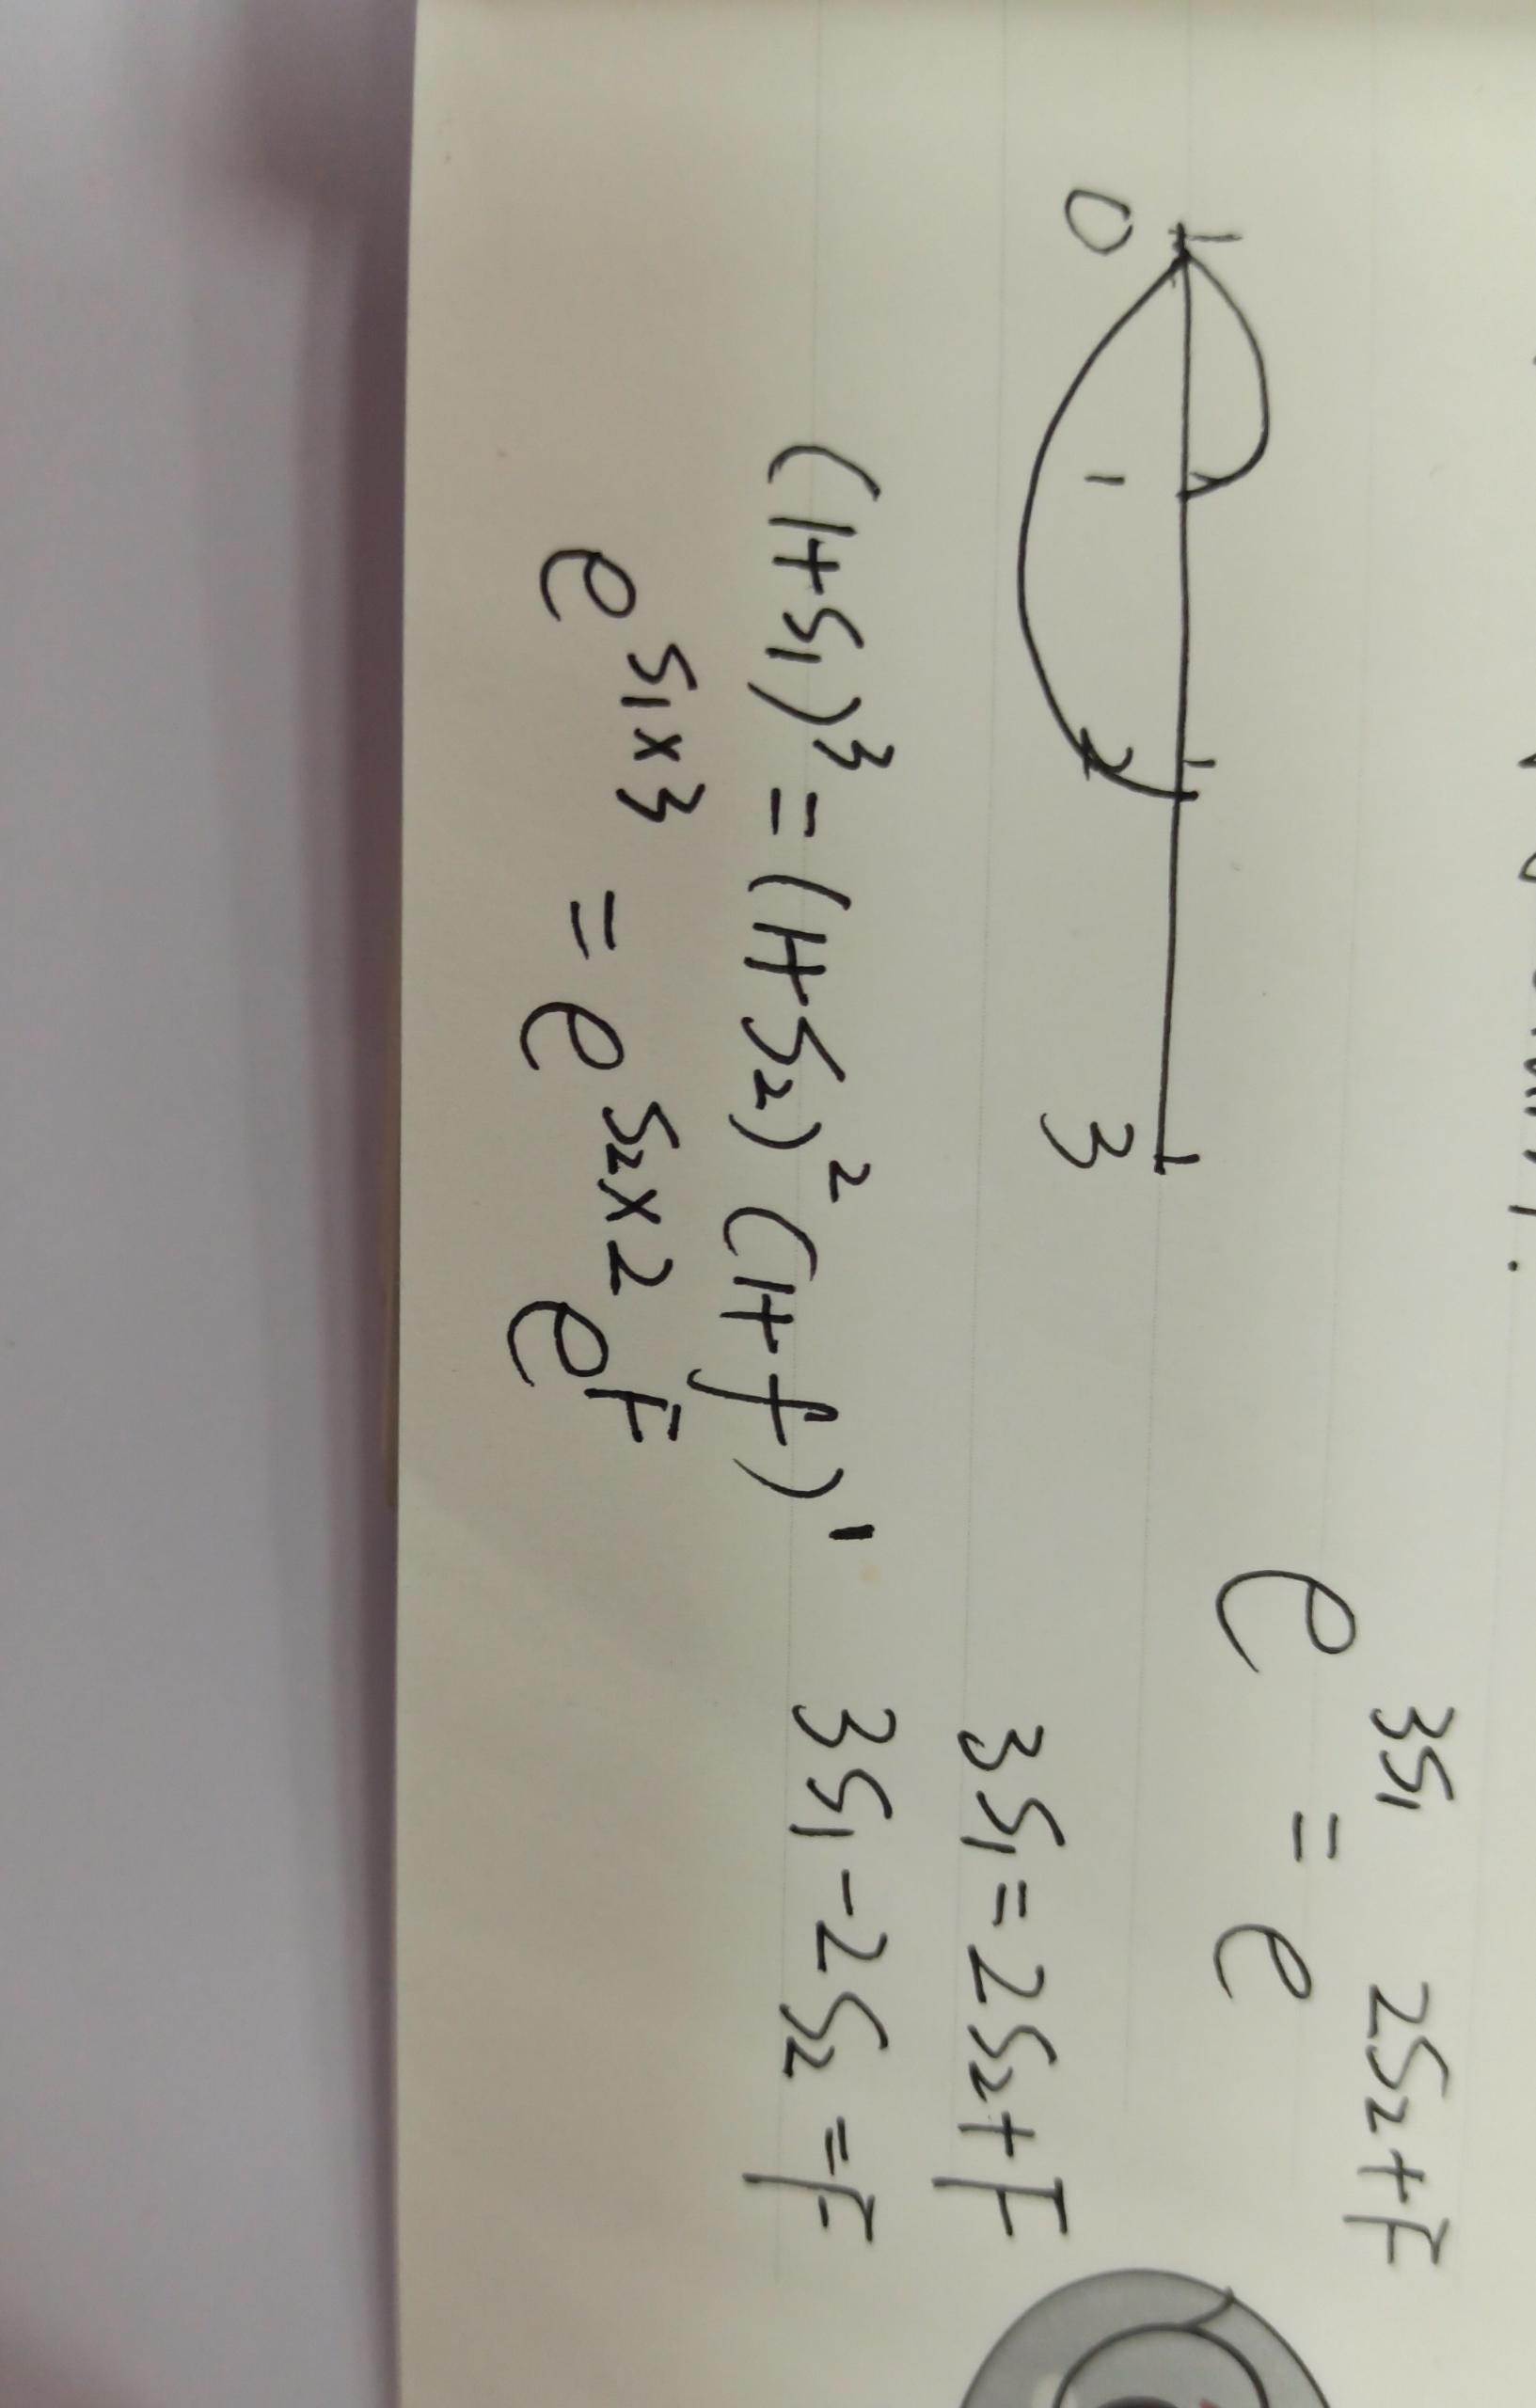 0 1 2 3
(1+S₁)³ = (1+S₂)² (1+f)¹
e^{S₁×3} = e^{S₂×2} e^F
e^{3S₁} = e^{2S₂+F}
3S₁ = 2S₂+F
3S₁-2S₂ = F